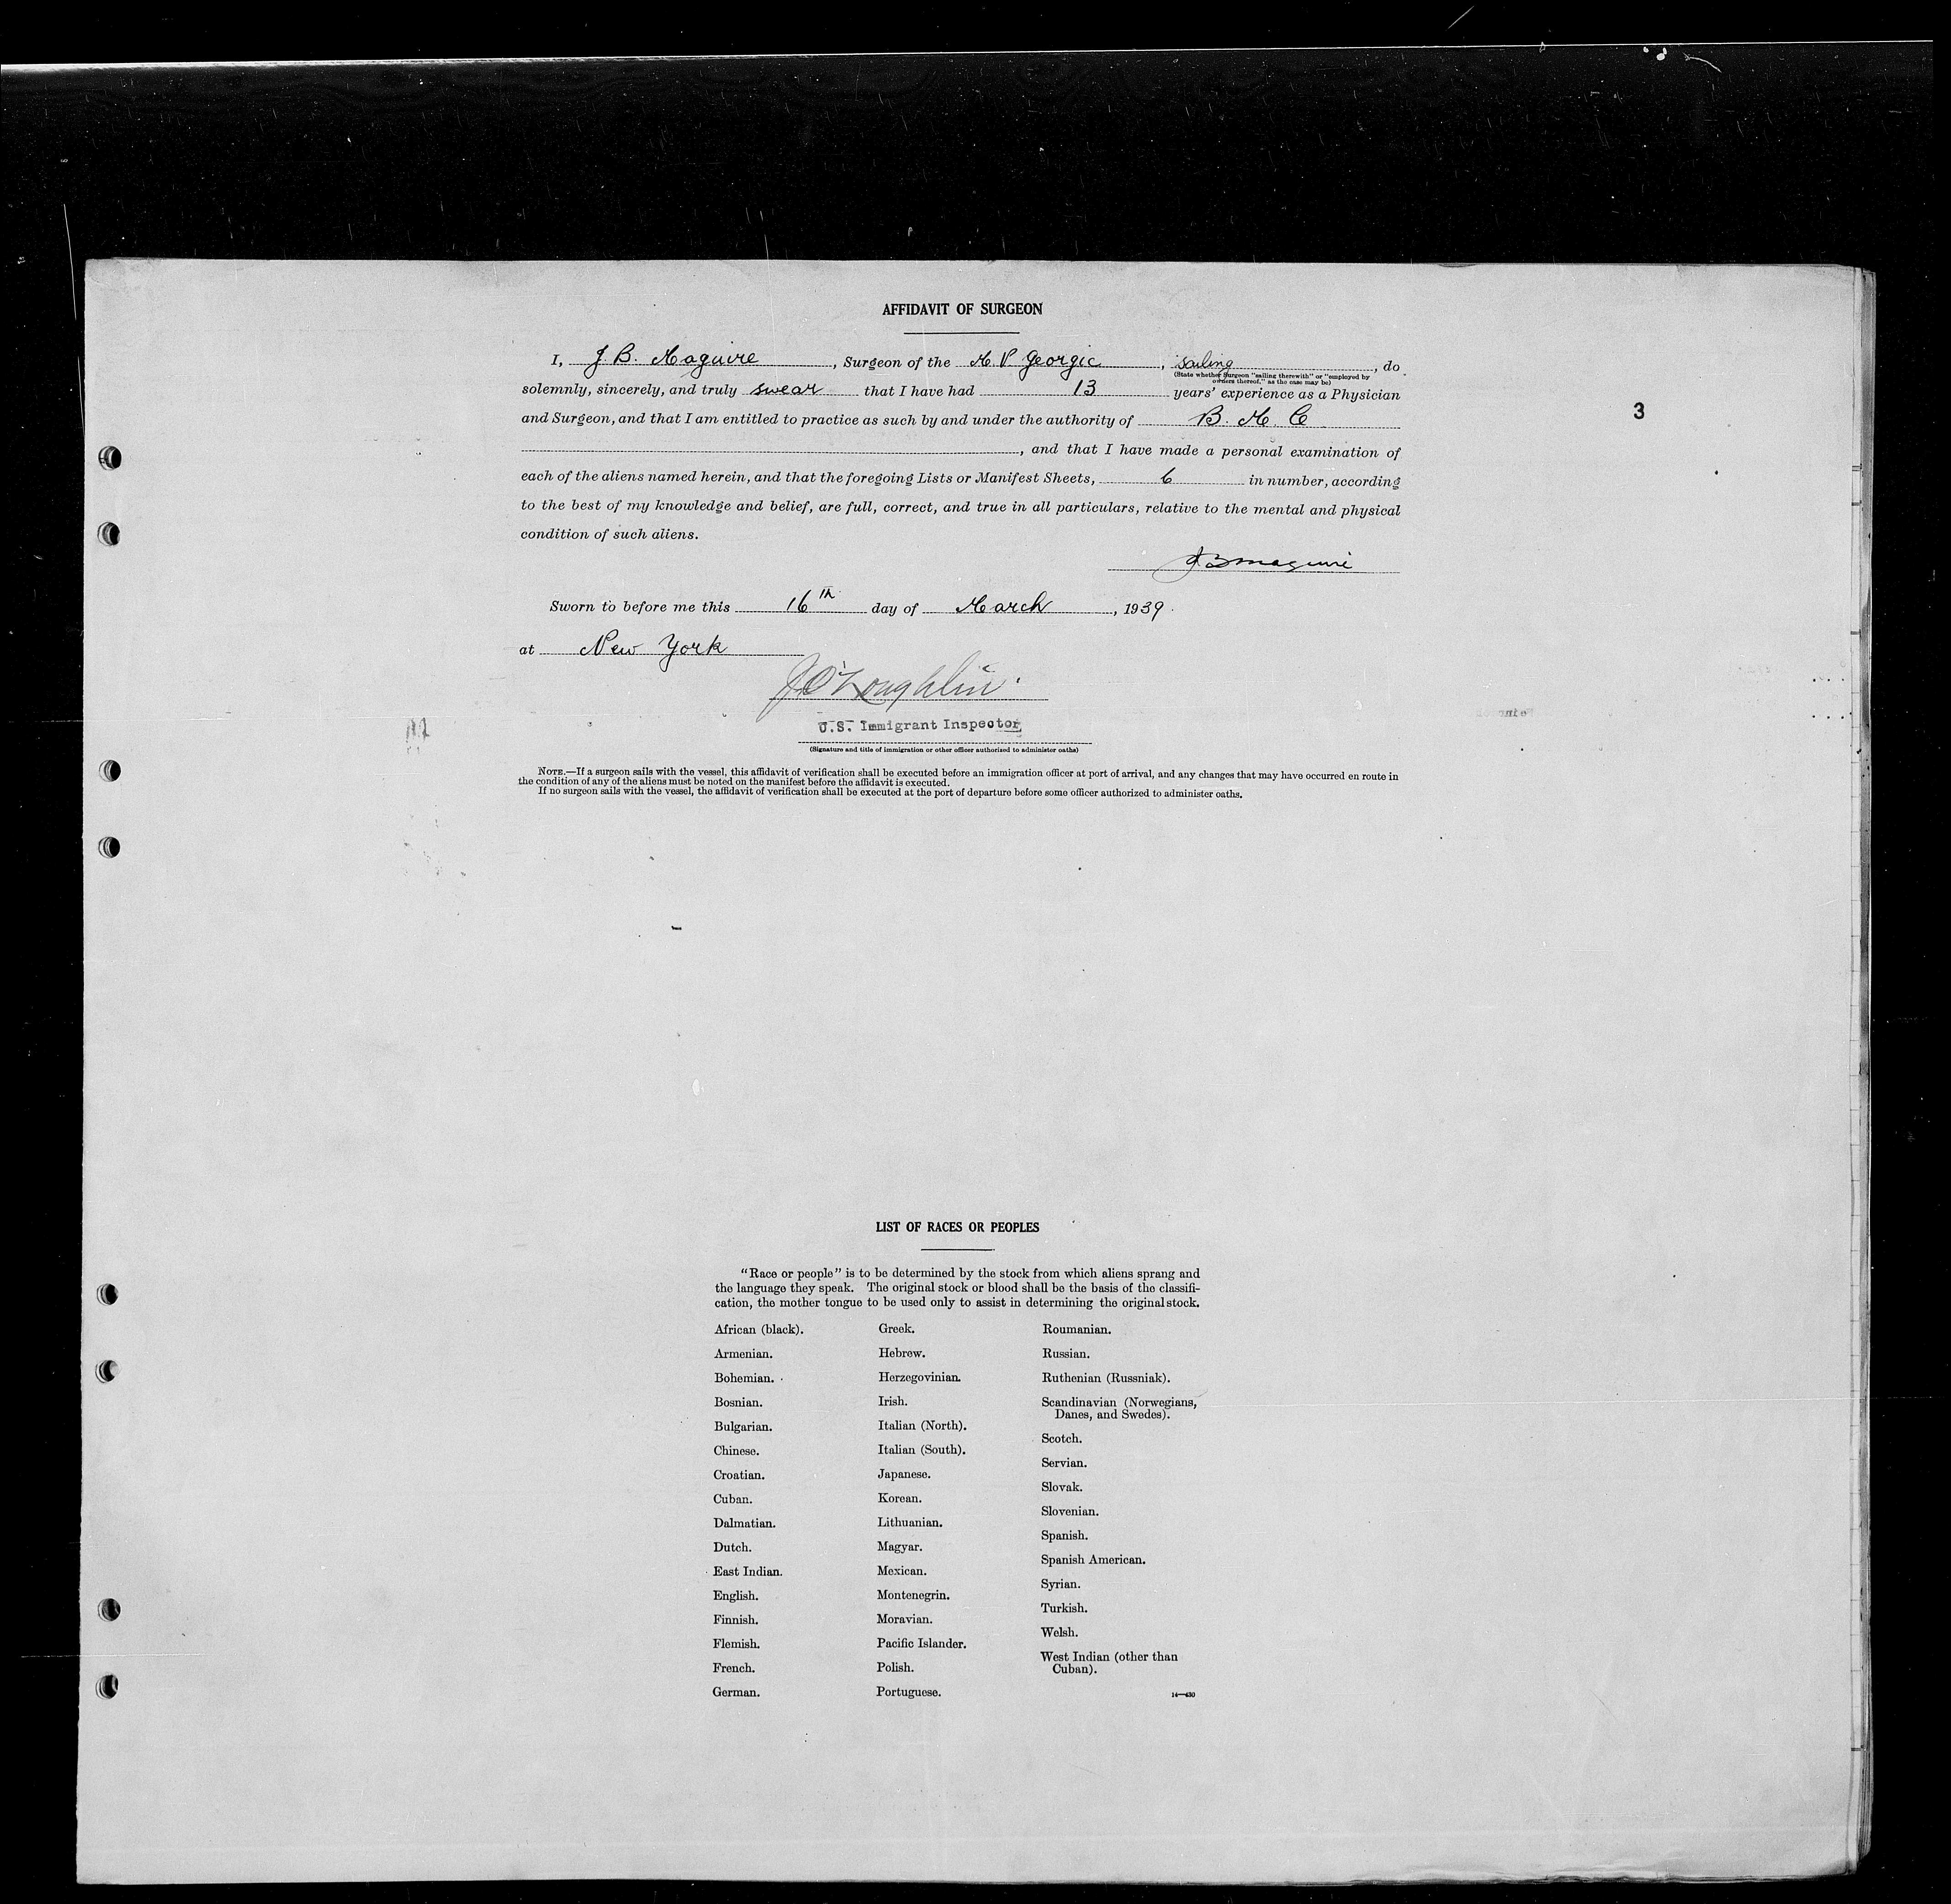 AFFIDAVIT OF SURGEON
I, J. B. Maguire, Surgeon of the M V Georgic, sailing, do
(State whether Surgeon "sailing therewith" or "employed by
owners thereof," as the case may be)
solemnly, sincerely, and truly swear that I have had 13 years' experience as a Physician
and Surgeon, and that I am entitled to practice as such by and under the authority of B. M. C
3
, and that I have made a personal examination of
each of the aliens named herein, and that the foregoing Lists or Manifest Sheets, 6 in number, according
to the best of my knowledge and belief, are full, correct, and true in all particulars, relative to the mental and physical
condition of such aliens.
J B Maguire
Sworn to before me this 16th day of March, 1939.
at New York
J O'Loughlin
U.S. Immigrant Inspector
(Signature and title of immigration or other officer authorized to administer oaths)
NOTE.—If a surgeon sails with the vessel, this affidavit of verification shall be executed before an immigration officer at port of arrival, and any changes that may have occurred en route in
the condition of any of the aliens must be noted on the manifest before the affidavit is executed.
If no surgeon sails with the vessel, the affidavit of verification shall be executed at the port of departure before some officer authorized to administer oaths.
LIST OF RACES OR PEOPLES
"Race or people" is to be determined by the stock from which aliens sprang and
the language they speak. The original stock or blood shall be the basis of the classifi-
cation, the mother tongue to be used only to assist in determining the original stock.
African (black).
Armenian.
Bohemian.
Bosnian.
Bulgarian.
Chinese.
Croatian.
Cuban.
Dalmatian.
Dutch.
East Indian.
English.
Finnish.
Flemish.
French.
German.
Greek.
Hebrew.
Herzegovinian.
Irish.
Italian (North).
Italian (South).
Japanese.
Korean.
Lithuanian.
Magyar.
Mexican.
Montenegrin.
Moravian.
Pacific Islander.
Polish.
Portuguese.
Roumanian.
Russian.
Ruthenian (Russniak).
Scandinavian (Norwegians,
Danes, and Swedes).
Scotch.
Servian.
Slovak.
Slovenian.
Spanish.
Spanish American.
Syrian.
Turkish.
Welsh.
West Indian (other than
Cuban).
14—430